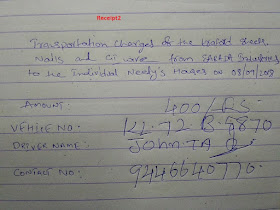 Receipt2
Transportation Charges of the Roof Sheets,
Nails and GI wire from SARGA Industries
to the Individual Needy's Houses on 08/07/2018
AMOUNT: 400/RS
VEHICLE NO: KL-72-B-5870
DRIVER NAME: JOHN-TA
CONTACT NO: 9446640770